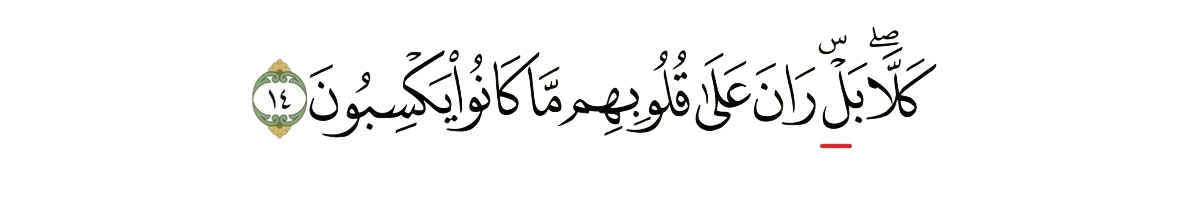 كَلَّاۖ بَلۡۜ رَانَ عَلَىٰ قُلُوبِهِم مَّا كَانُواْ يَكۡسِبُونَ ١٤